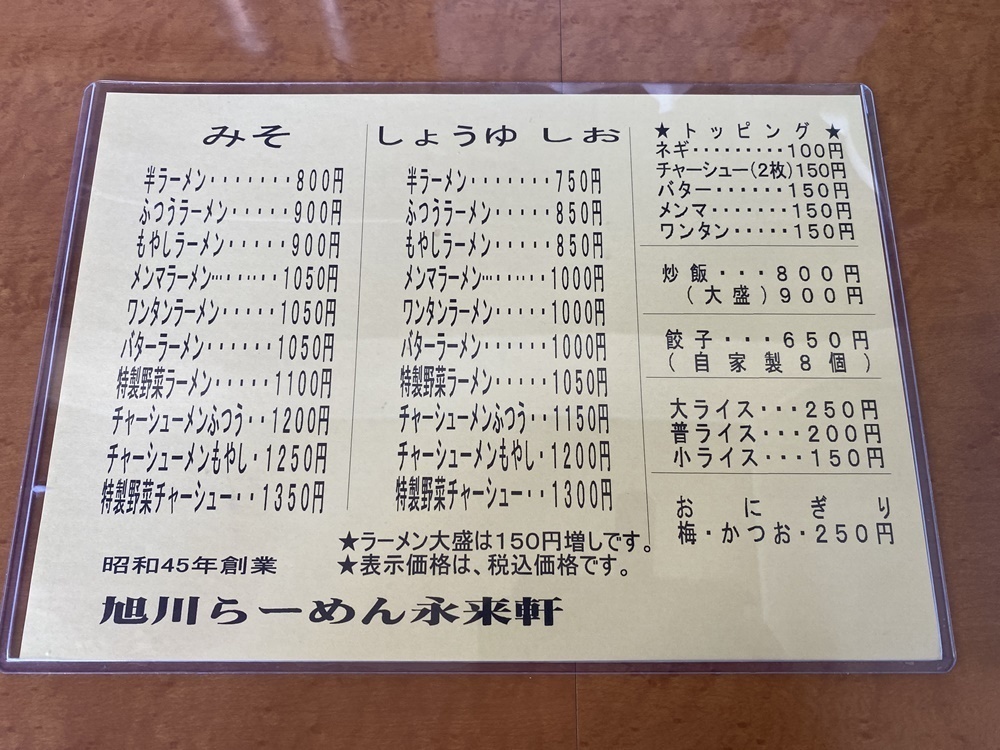 みそ
半ラーメン・・・・・・・800円
ふつうラーメン・・・・・900円
もやしラーメン・・・・・900円
メンマラーメン・・・・・・・1050円
ワンタンラーメン・・・・・1050円
バターラーメン・・・・・・1050円
特製野菜ラーメン・・・・・1100円
チャーシューメンふつう・・1200円
チャーシューメンもやし・1250円
特製野菜チャーシュー・・1350円
しょうゆ しお
半ラーメン・・・・・・・750円
ふつうラーメン・・・・・850円
もやしラーメン・・・・・850円
メンマラーメン・・・・・・・1000円
ワンタンラーメン・・・・・1000円
バターラーメン・・・・・・1000円
特製野菜ラーメン・・・・・1050円
チャーシューメンふつう・・1150円
チャーシューメンもやし・1200円
特製野菜チャーシュー・・1300円
★トッピング★
ネギ・・・・・・・・・100円
チャーシュー(2枚)150円
バター・・・・・・150円
メンマ・・・・・・・150円
ワンタン・・・・・150円
炒飯・・・800円
(大盛)900円
餃子・・・650円
(自家製8個)
大ライス・・・250円
普ライス・・・200円
小ライス・・・150円
おにぎり
梅・かつお・250円
★ラーメン大盛は150円増しです。
★表示価格は、税込価格です。
昭和45年創業
旭川らーめん永来軒